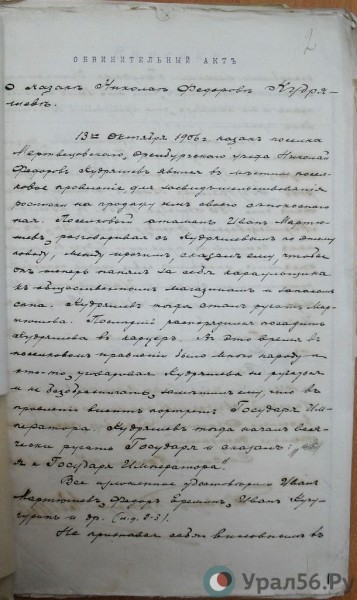 2
ОБВИНИТЕЛЬНЫЙ АКТЪ
О казакѣ Николаѣ Федоровѣ Кудря-
шевѣ.
13го Октября 1906 г. казакъ поселка
Мертвецовскаго, Оренбургскаго уѣзда Николай
Федоровъ Кудряшевъ явился въ мѣстное посел-
ковое правленіе для засвидѣтельствованія
росписки на продажу имъ своего сѣнокоснаго
пая. Поселковый атаманъ Иванъ Мартю-
шевъ, разговаривая съ Кудряшевымъ по этому
поводу, между прочимъ, сказалъ ему, чтобы
онъ теперь нанялъ за себя караульщика
къ общественнымъ магазинамъ и запасамъ
сѣна. Кудряшевъ тогда сталъ ругать Мар-
тюшева. Послѣдній распорядился посадить
Кудряшева въ карцеръ. Въ это время въ
поселковомъ правленіи было много народу и
кто-то, уговаривая Кудряшева не ругаться
и не безобразничать, замѣтилъ ему, что въ
правленіи виситъ портретъ Государя Им-
ператора. Кудряшевъ тогда началъ вся-
чески ругать Государя и сказалъ:
я и Государя Императора".
Все изложенное удостовѣрили Иванъ
Мартюшевъ, Федоръ Ереминъ, Иванъ
и др. (л.д. 2-3).
Не признавая себя виновнымъ въ
Урал56.Ру